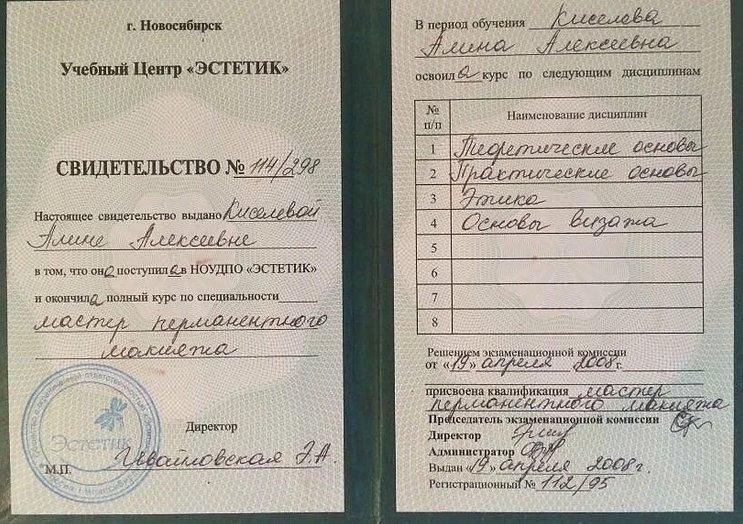 г. Новосибирск
Учебный Центр «ЭСТЕТИК»
СВИДЕТЕЛЬСТВО № 114/298
Настоящее свидетельство выдано Киселевой
Алине Алексеевне
в том, что она поступила в НОУДПО «ЭСТЕТИК»
и окончила полный курс по специальности
мастер перманентного
макияжа
Эстетик
Директор
М.П.
В период обучения Киселева
Алина Алексеевна
освоила курс по следующим дисциплинам
№ п/п Наименование дисциплин
1 Теоретические основы
2 Практические основы
3 Этика
4 Основы визажа
5
6
7
8
Решением экзаменационной комиссии
от «19» апреля 2008 г.
присвоена квалификация мастер
перманентного макияжа
Председатель экзаменационной комиссии
Директор
Администратор
Выдан «19» апреля 2008г.
Регистрационный № 112/95